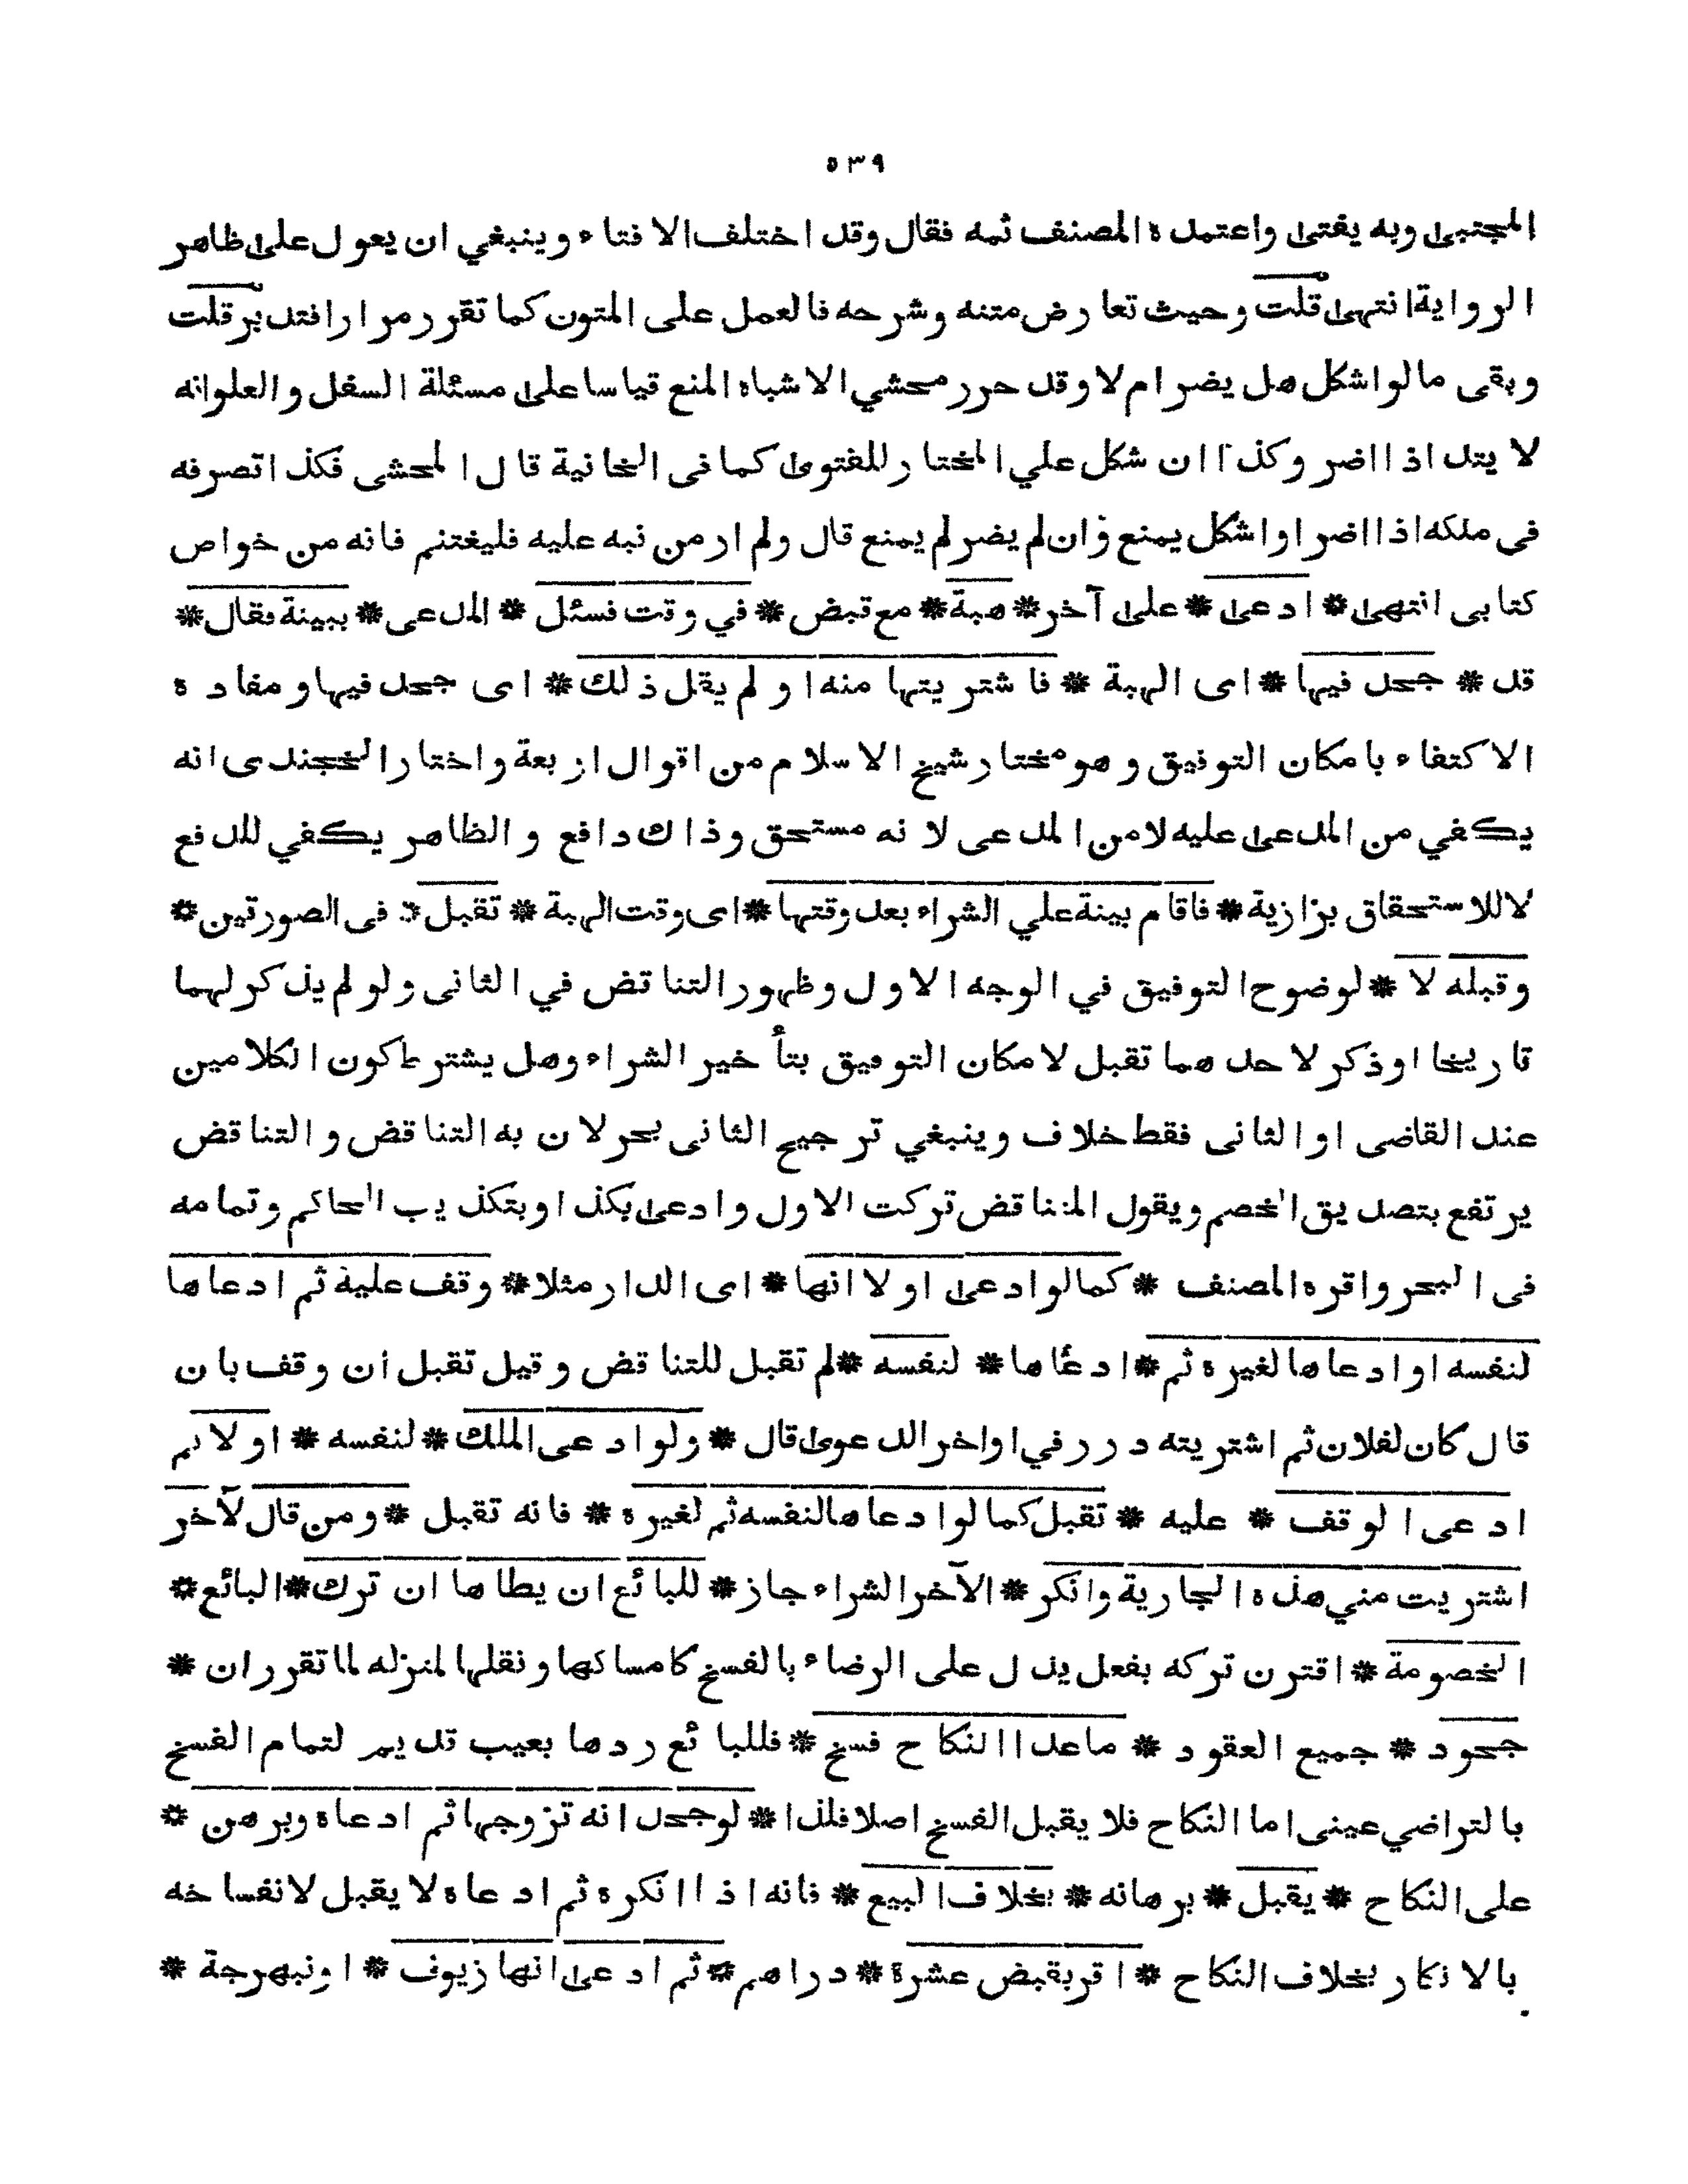 ٥٣٩
المجتبى وبه يفتى واعتمده المصنف ثمه فقال وقد اختلف الافتاء وينبغي ان يعول على ظاهر
الرواية انتهى قلت وحيث تعارض متنه وشرحه فالعمل على المتون كما تقرر مرارا فتدبر قلت
وبقى مالواشكل هل يضر ام لا وقد حرر محشي الاشباه المنع قياسا على مسئلة السفل والعلو انه
لا يتد اذا اضر وكذا ان شكل علي المختار للفتوى كما فى الخانية قال المحشى فكذا تصرفه
فى ملكه اذا اضر او اشكل يمنع وان لم يضر لم يمنع قال ولم ار من نبه عليه فليغتنم فانه من خواص
كتابى انتهى * ادعى * على آخر * هبة * مع قبض * في وقت فسئل * المدعى * ببينة فقال *
قد * جحد فيها * اى الهبة * فاشتريتها منه او لم يقل ذلك * اى جحد فيها ومفاده
الاكتفاء بامكان التوفيق وهو مختار شيخ الاسلام من اقوال اربعة واختار الخجندى انه
يكفي من المدعى عليه لا من المدعى لانه مستحق وذاك دافع والظاهر يكفي للدفع
لا للاستحقاق بزازية * فاقام بينة علي الشراء بعد وقتها * اى وقت الهبة * تقبل * فى الصورتين *
وقبله لا * لوضوح التوفيق في الوجه الاول وظهور التناقض في الثانى ولو لم يذكر لهما
تاريخا اوذكر لاحدهما تقبل لامكان التوفيق بتأخير الشراء وهل يشترط كون الكلامين
عند القاضى او الثانى فقط خلاف وينبغي ترجيح الثانى بحر لان به التناقض والتناقض
يرتفع بتصديق الخصم ويقول المتناقض تركت الاول وادعى بكذا اوبتكذيب الحاكم وتمامه
فى البحر واقره المصنف * كما لوادعى اولا انها * اى الدار مثلا * وقف عليه ثم ادعاها
لنفسه او ادعاها لغيره ثم * ادعاها * لنفسه * لم تقبل للتناقض وقيل تقبل ان وقف بان
قال كان لفلان ثم اشتريته درر في اواخر الدعوى قال * ولو ادعى الملك * لنفسه * اولا ثم
ادعى الوقف * عليه * تقبل كما لو ادعاها لنفسه ثم لغيره * فانه تقبل * ومن قال لآخر
اشتريت مني هذه الجارية وانكر * الآخر الشراء جاز * للبائع ان يطاها ان ترك * البائع *
الخصومة * اقترن تركه بفعل يدل على الرضاء بالفسخ كامساكها ونقلها لمنزله لما تقرر ان *
جحود * جميع العقود * ماعدا النكاح فسخ * فللبائع ردها بعيب قديم لتمام الفسخ
بالتراضي عينى اما النكاح فلا يقبل الفسخ اصلا فلذا * لوجحد انه تزوجها ثم ادعاه وبرهن *
على النكاح * يقبل * برهانه * بخلاف البيع * فانه اذا انكره ثم ادعاه لا يقبل لانفساخه
بالانكار بخلاف النكاح * اقر بقبض عشرة * دراهم * ثم ادعى انها زيوف * اونبهرجة *